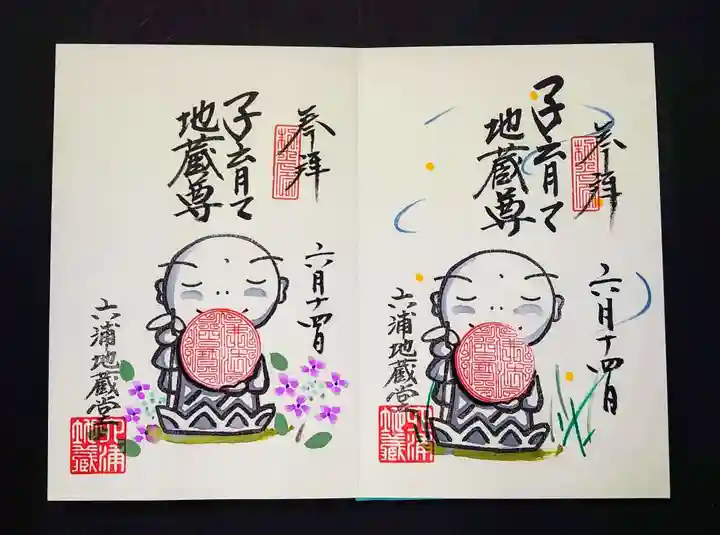 奉拝
子育て
地蔵尊
六月十四日
六浦地蔵堂
六浦
地蔵
奉拝
子育て
地蔵尊
六月十四日
六浦地蔵堂
六浦
地蔵